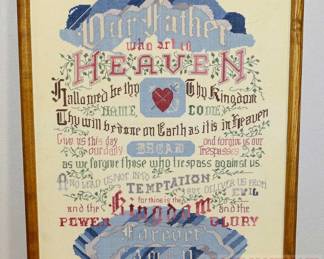 Our Father
who art in
HEAVEN
Hallowed be thy Thy Kingdom
NAME, COME,
Thy will be done on Earth as it is in Heaven
Give us this day and forgive us our
our daily BREAD trespasses
as we forgive those who trespass against us.
AND LEAD US NOT INTO
TEMPTATION
BUT DELIVER US FROM
EVIL
for thine is the
and the Kingdom and the
POWER GLORY
Forever